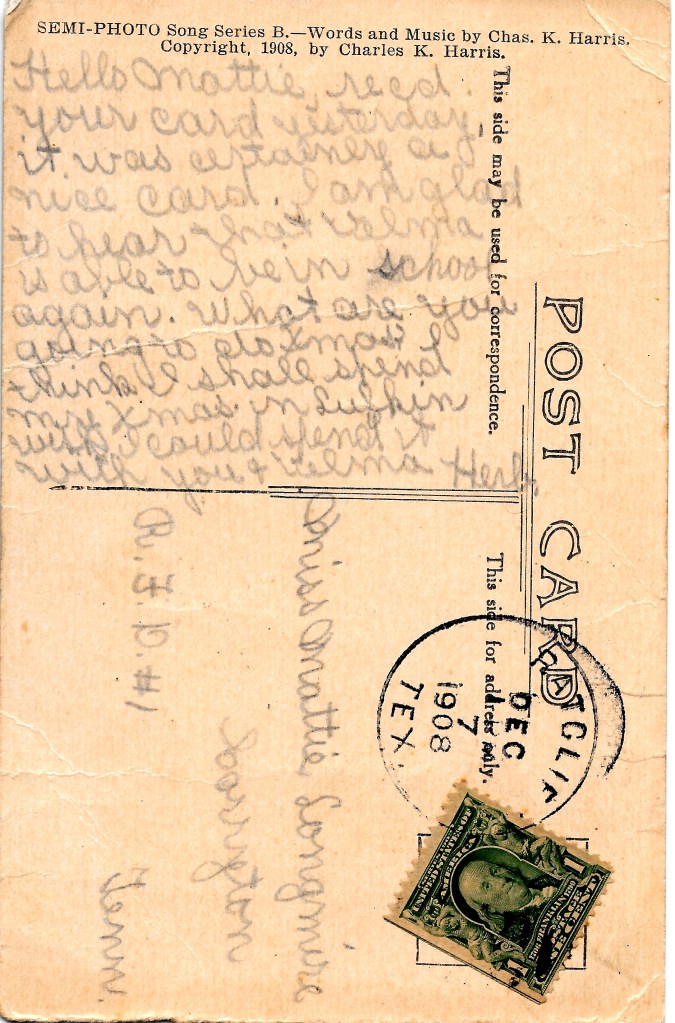 SEMI-PHOTO Song Series B.—Words and Music by Chas. K. Harris.
Copyright, 1908, by Charles K. Harris.
Hello Mattie, recd.
your card yesterday,
it was certainley a
nice card. I am glad
to hear that Velma
is able to be in school
again. What are you
going to do Xmas? I
think I shall spend
my Xmas. in Lufkin
wish I could spend it
with you & Velma Herb.
This side may be used for correspondence.
POST CARD
This side for address only.
DEC
7
1908
TEX.
Miss Mattie Longmire
R. F. D. #1
Tenn.
UNITED STATES OF AMERICA
1
1